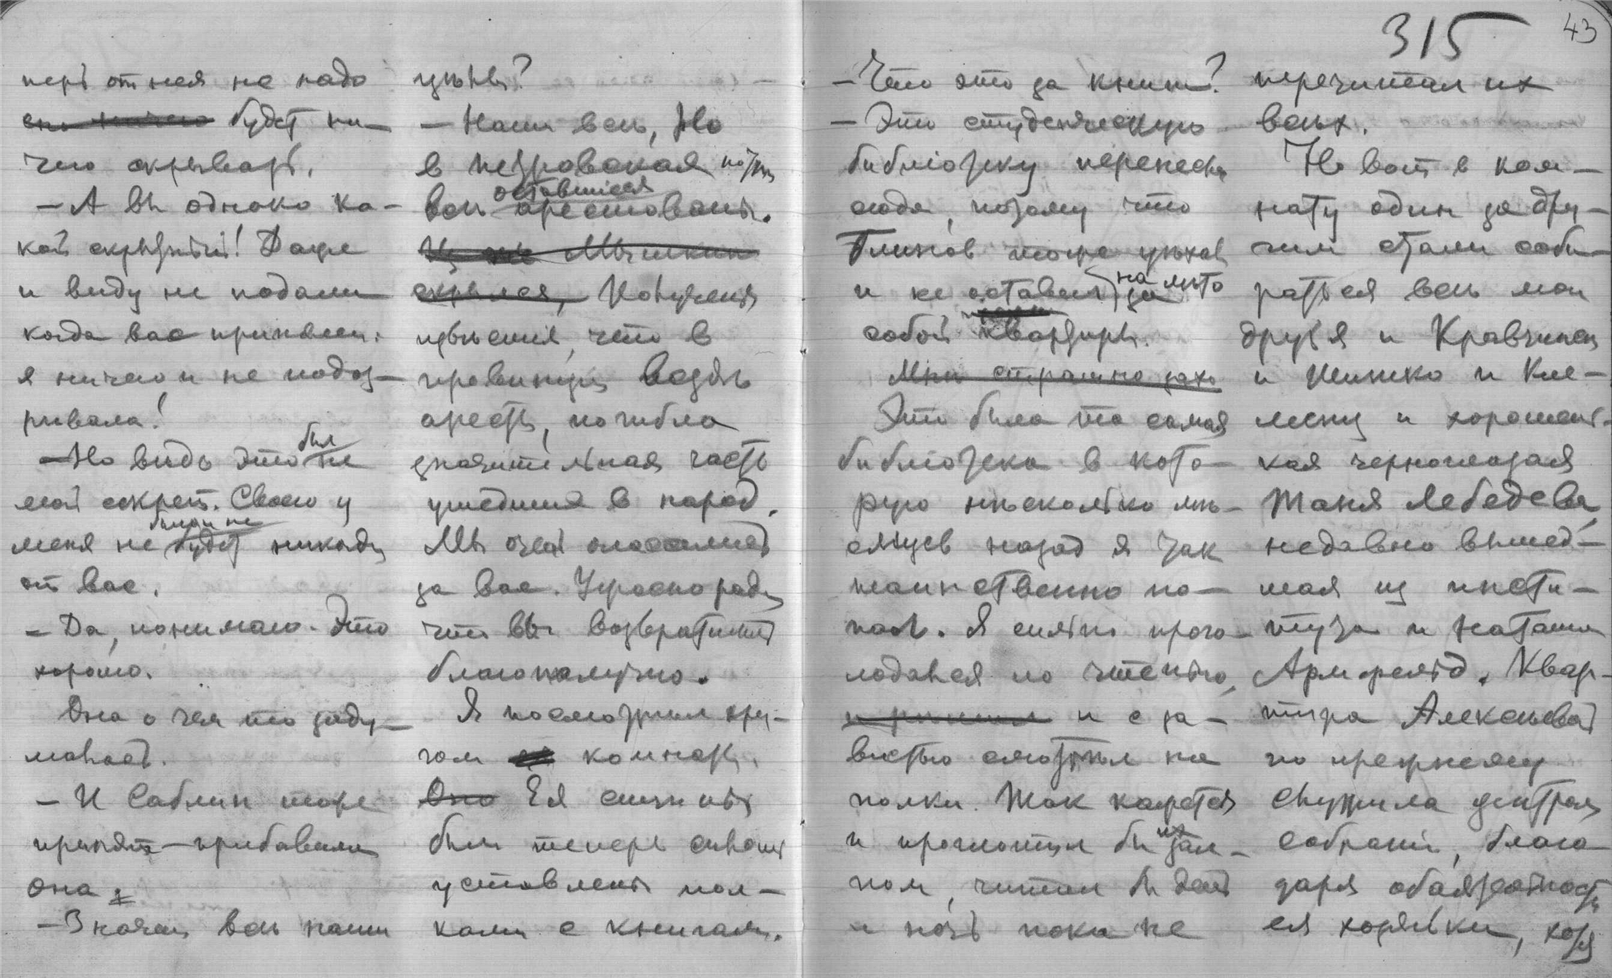 315
43
перь от нея не надо
будет ни-
чего скрывать.
— А вы однако ка-
кой скрытный! Даже
и виду не подали
когда вас приняли:
я ничего и не подоз-
ривала!
— Но ведь это был не
мой секрет. Своего у
меня не было и не будет никогда
от вас.
— Да, понимаю. Это
хорошо.
Она о чем то заду-
малась.
— И Саблин тоже
принят — прибавила
она.
— Значит все наши
целы?
— Наши все, но
в петровская почти
все оставшиеся арестованы.
Из них Мышкин
скрылся, Получены
известия, что в
провинции везде
аресты, погибла
значительная часть
ушедших в народ.
Мы очень опасались
за вас. Ужасно рады
что вы возвратились
благополучно.
Я посмотрел кру-
гом комнаты.
Она Ея стены
были теперь сплошь
уставлены пол-
ками с книгами.
— Что это за книги?
— Это студенческую
библіотеку перенесли
сюда, потому что
Блинов тоже уехал
и не оставил на лето за
собой квартиры.
Мне страшно захо
Это была та самая
библіотека в кото-
рую несколько ме-
сяцев назад я так
таинственно по-
пал. Я сильно прого-
лодался по чтению,
и с за-
вистью смотрел на
полки. Так кажется
и проглотил бы их зал-
пом, читал бы день
и ночь пока не
перечитал их
всех.
Но вот в ком-
нату один за дру-
гим стали соби-
раться все мои
друзья и Кравчинский
и Шишко и Кле-
менц и хорошень-
кая черноглазая
Таня Лебедева,
недавно вышед-
шая из инсти-
тута и Наташа
Армфельд. Квар-
тира Алексеевой
по прежнему
служила центром
собраній, благо-
даря обаятельности
ея хозяйки, хотя